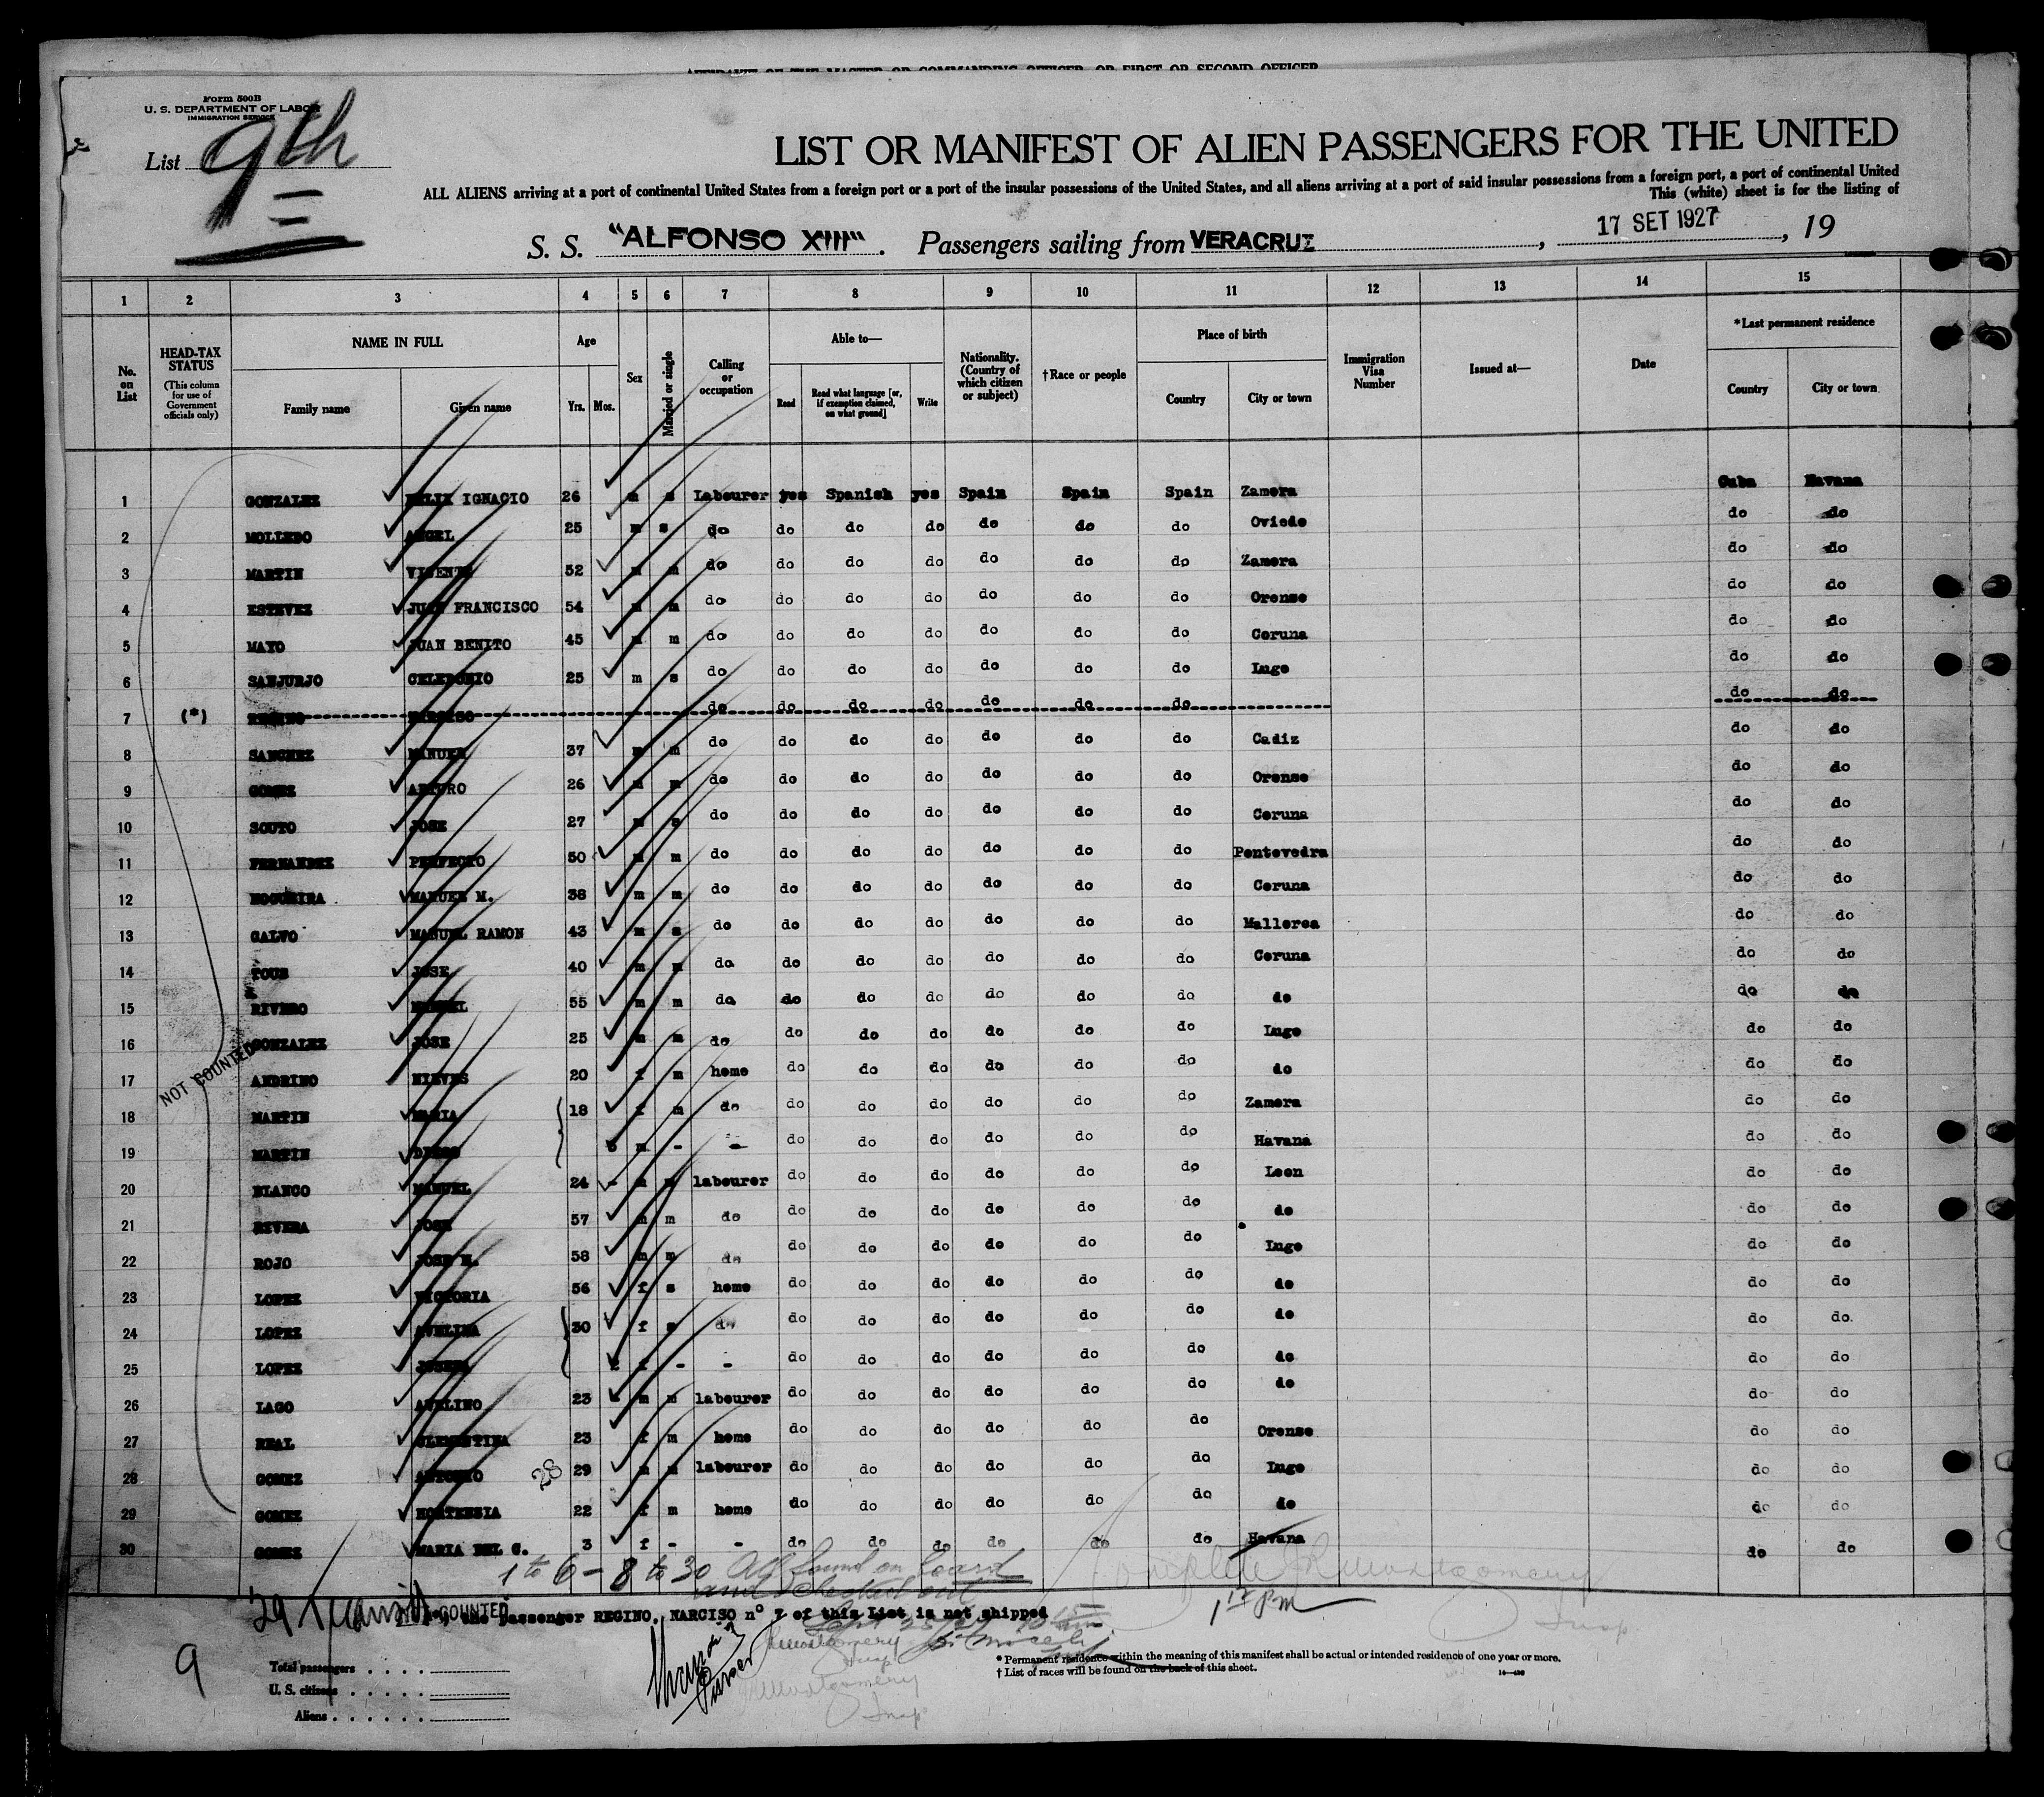 AFFIDAVIT OF THE MASTER OR COMMANDING OFFICER, OR FIRST OR SECOND OFFICER
Form 500B
U. S. DEPARTMENT OF LABOR
IMMIGRATION SERVICE
List 9th
LIST OR MANIFEST OF ALIEN PASSENGERS FOR THE UNITED
ALL ALIENS arriving at a port of continental United States from a foreign port or a port of the insular possessions of the United States, and all aliens arriving at a port of said insular possessions from a foreign port, a port of continental United
This (white) sheet is for the listing of
S. S. "ALFONSO XIII". Passengers sailing from VERACRUZ, 17 SET 1927, 19
1 2 3 4 5 6 7 8 9 10 11 12 13 14 15
No. on List
HEAD-TAX STATUS (This column for use of Government officials only)
NAME IN FULL
Family name Given name
Age
Yrs. Mos.
Sex
Married or single
Calling or occupation
Able to—
Read Read what language [or, if exemption claimed, on what ground] Write
Nationality. (Country of which citizen or subject)
†Race or people
Place of birth
Country City or town
Immigration Visa Number
Issued at—
Date
*Last permanent residence
Country City or town
1 GONZALEZ FELIX IGNACIO 26 m s Labourer yes Spanish yes Spain Spain Spain Zamora Cuba Havana
2 MOLLEDO ANGEL 25 m s do do do do do do do Oviedo do do
3 MARTIN VICENTE 52 m m do do do do do do do Zamora do do
4 ESTEVEZ JUAN FRANCISCO 54 m m do do do do do do do Orense do do
5 MAYO JUAN BENITO 45 m m do do do do do do do Coruna do do
6 SANJURJO CELEDONIO 25 m s do do do do do do do Lugo do do
7 (*) REGINO NARCISO do do do do do do do do do
8 SANCHEZ MANUEL 37 m m do do do do do do do Cadiz do do
9 GOMEZ ARTURO 26 m m do do do do do do do Orense do do
10 SOUTO JOSE 27 m s do do do do do do do Coruna do do
11 FERNANDEZ PERFECTO 50 m m do do do do do do do Pontevedra do do
12 NOGUEIRA MANUEL M. 38 m m do do do do do do do Coruna do do
13 CALVO MANUEL RAMON 43 m s do do do do do do do Mallorca do do
14 TOUS JOSE 40 m m do do do do do do do Coruna do do
15 RIVERO MANUEL 55 m m do do do do do do do do do do
16 GONZALEZ JOSE 25 m m do do do do do do do Lugo do do
17 ANDRINO NIEVES 20 f m home do do do do do do do do do
18 MARTIN MARIA 18 f m do do do do do do do Zamora do do
19 MARTIN DIEGO m - - do do do do do do Havana do do
20 BLANCO MANUEL 24 - m m labourer do do do do do do Leon do do
21 RIVERA JOSE 57 m m do do do do do do do do do do
22 ROJO JOSE M. 58 m m do do do do do do do Lugo do do
23 LOPEZ VICTORIA 56 f s home do do do do do do do do do
24 LOPEZ AVELINA 30 f s do do do do do do do do do do
25 LOPEZ JOSEFA f - - do do do do do do do do do
26 LAGO AVELINO 23 m m labourer do do do do do do do do do
27 REAL CLEMENTINA 23 f m home do do do do do do Orense do do
28 GOMEZ ANTONIO 28 29 m m labourer do do do do do do Lugo do do
29 GOMEZ HORTENSIA 22 f m home do do do do do do do do do
30 GOMEZ MARIA DEL C. 3 f - - do do do do do do Havana do do
NOT COUNTED
1 to 6 - 8 to 30 All found on board
and checked out
29 Transit
COUNTED
the passenger REGINO, NARCISO nº 7 of this List is not shipped
Sept 25/27
Montgomery
Insp
1 12 pm
Montgomery
Insp
Purser
Montgomery
Insp
9
Total passengers
U. S. citizens
Aliens
* Permanent residence within the meaning of this manifest shall be actual or intended residence of one year or more.
† List of races will be found on the back of this sheet.